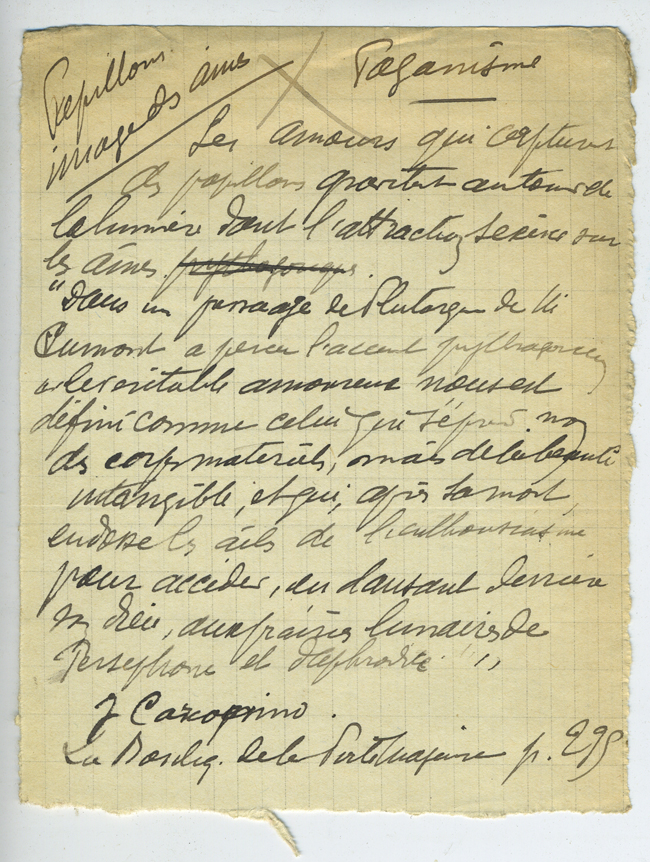 Papillons
image des âmes
Paganisme
Les amours qui capturent
des papillons gravitent autour de
la lumière dont l'attraction s'exerce sur
les âmes pythagorique.
"Dans un passage de Plutarque de M
Cumont a perçu l'accent pythagoricien
le véritable amoureux nous est
défini comme celui qui s'éprend non
des corps matériels, mais de la beauté
intangible, et qui, après sa mort,
endosse les ailes de l'enthousiasme
pour accéder, en dansant derrière
son dieu, aux prairies lunaires de
Perséphone et d'Aphrodite"
J Carcopino.
La Basiliq. de la Porte Majeure p. 295